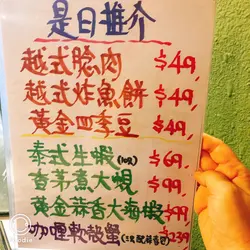 是日推介
越式腍肉 $49,
越式炸魚餅 $49,
黃金四季豆 $49,
泰式生蝦 $69,
香茅煮大蜆 $99,
黃金蒜香大海蝦 $99
咖喱軟殼蟹 $239